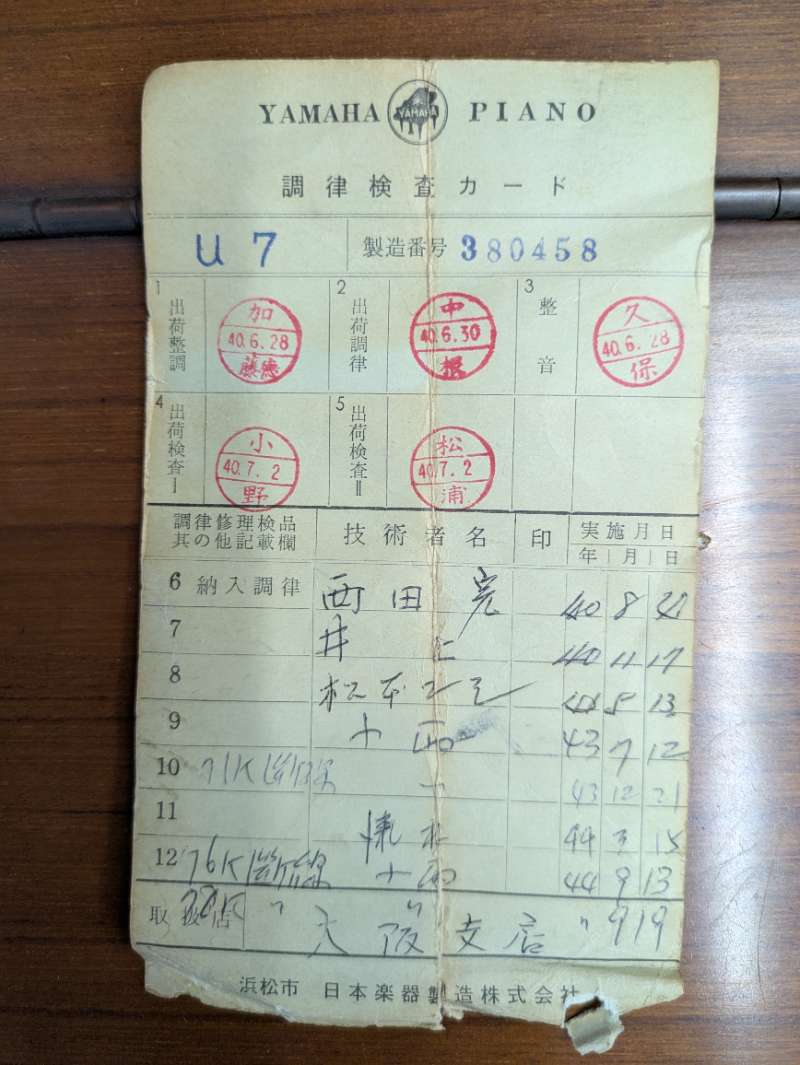 YAMAHA YAMAHA PIANO
調律検査カード
U 7 製造番号 380458
1 出荷整調 加 40.6.28 藤徳
2 出荷調律 中 40.6.30 根
3 整音 久 40.6.28 保
4 出荷検査Ⅰ 小 40.7.2 野
5 出荷検査Ⅱ 松 40.7.2 浦
調律修理検品其の他記載欄 技術者名 印 実施月日
年 月 日
6 納入調律 西田 40 8
7 井 仁 40 11 17
8 松本 5 13
9 小西 43 7 12
10 71K断線 〃 43 12 21
11 44 3 15
12 76K断線 小西 44 9 13
取扱店 〃 〃 〃 9 19
大阪支店
浜松市 日本楽器製造株式会社